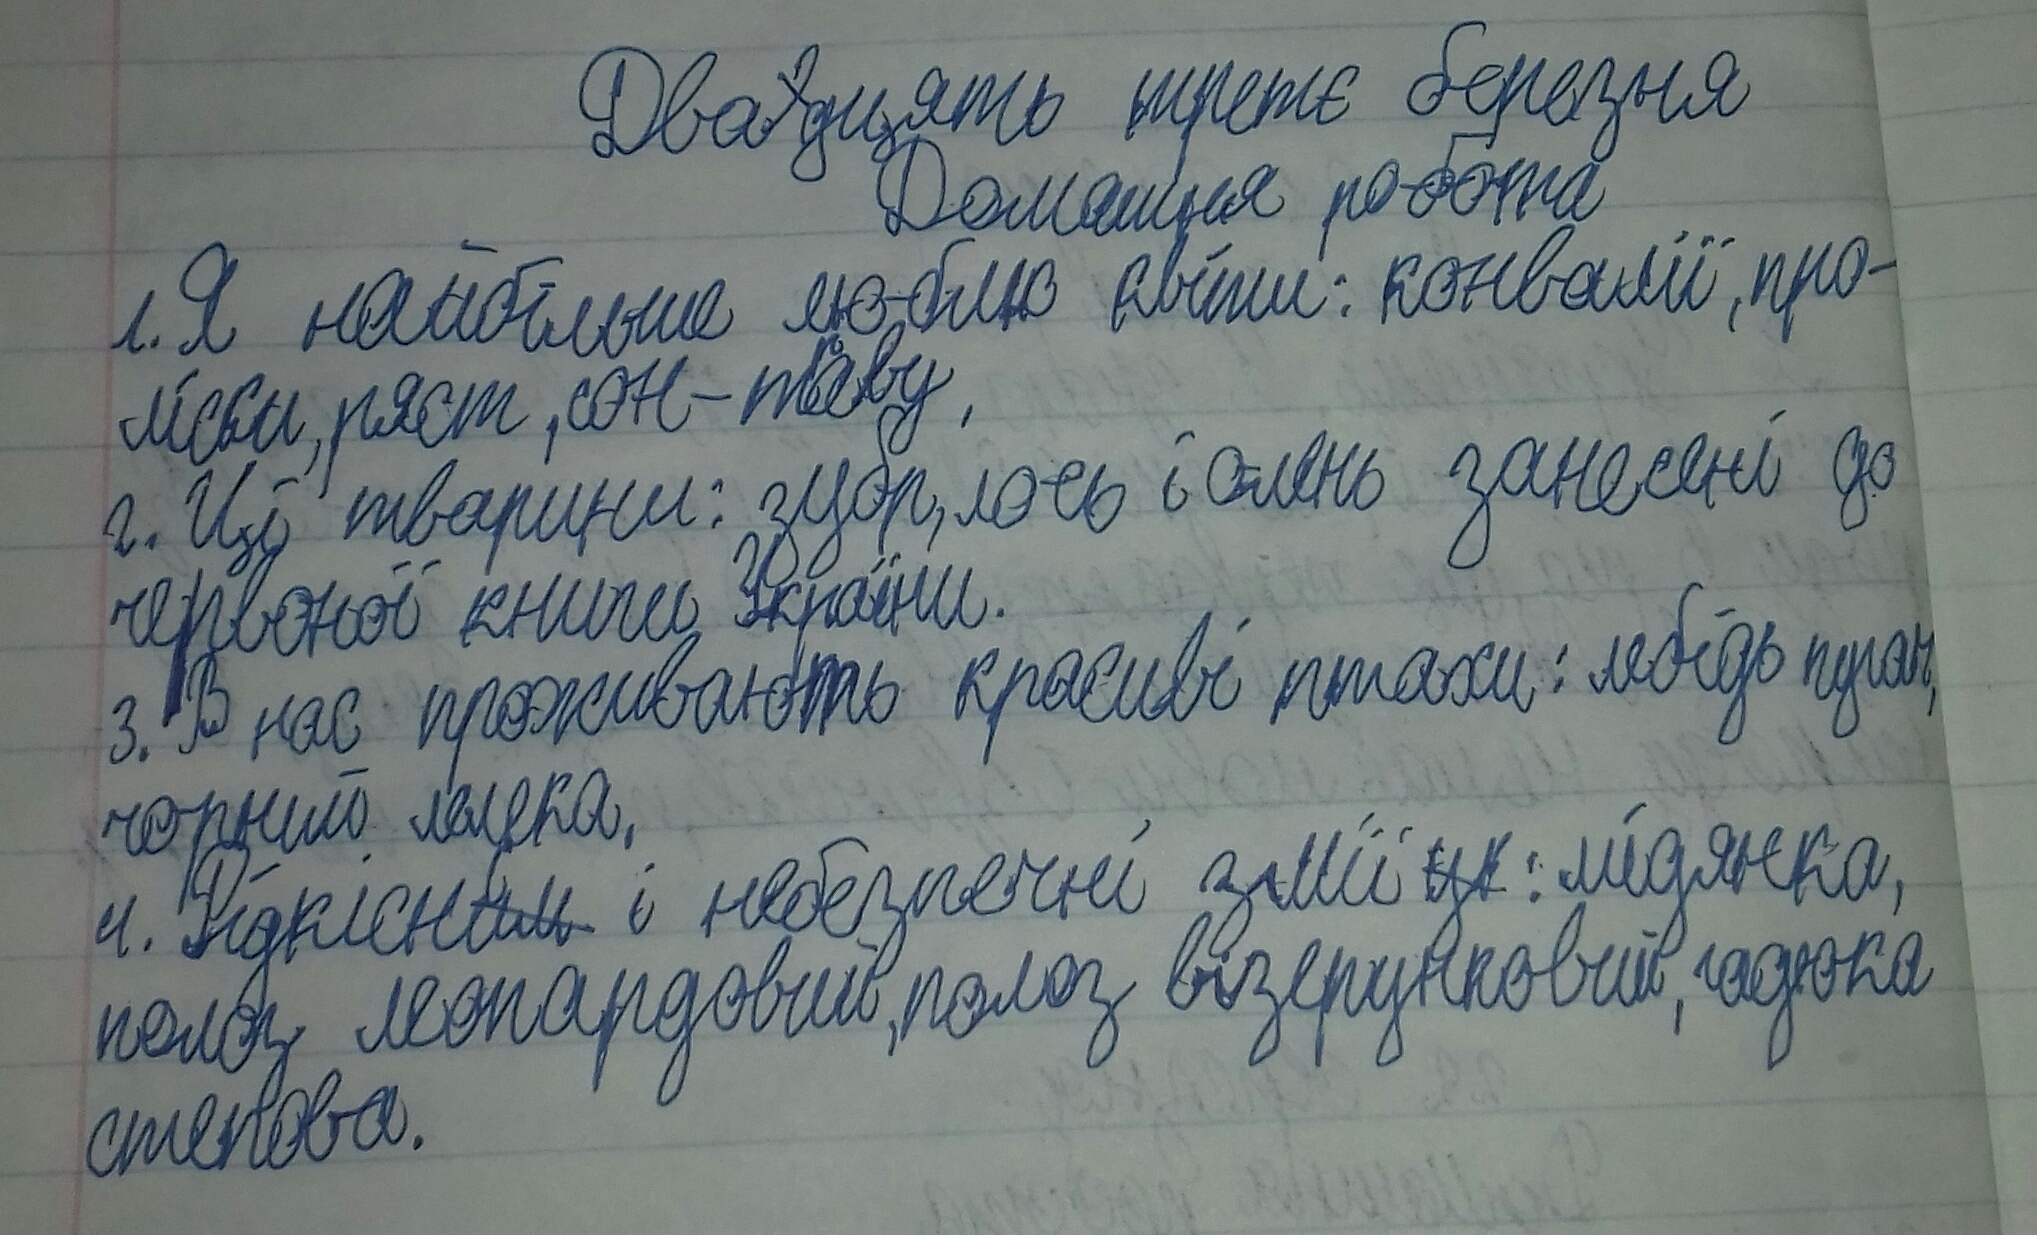 Двадцять третє березня
Домашня робота
1. Я найбільше люблю квіти: конвалії, про-
ліски, ряст, сон-траву.
2. Ці тварини: зубр, лось і олень занесені до
червоної книги України.
3. В нас проживають красиві птахи: лебідь пугач,
чорний лелека.
4. і небезпечні змії : мідянка,
полоз леопардовий, полоз візерунковий, гадюка
степова.